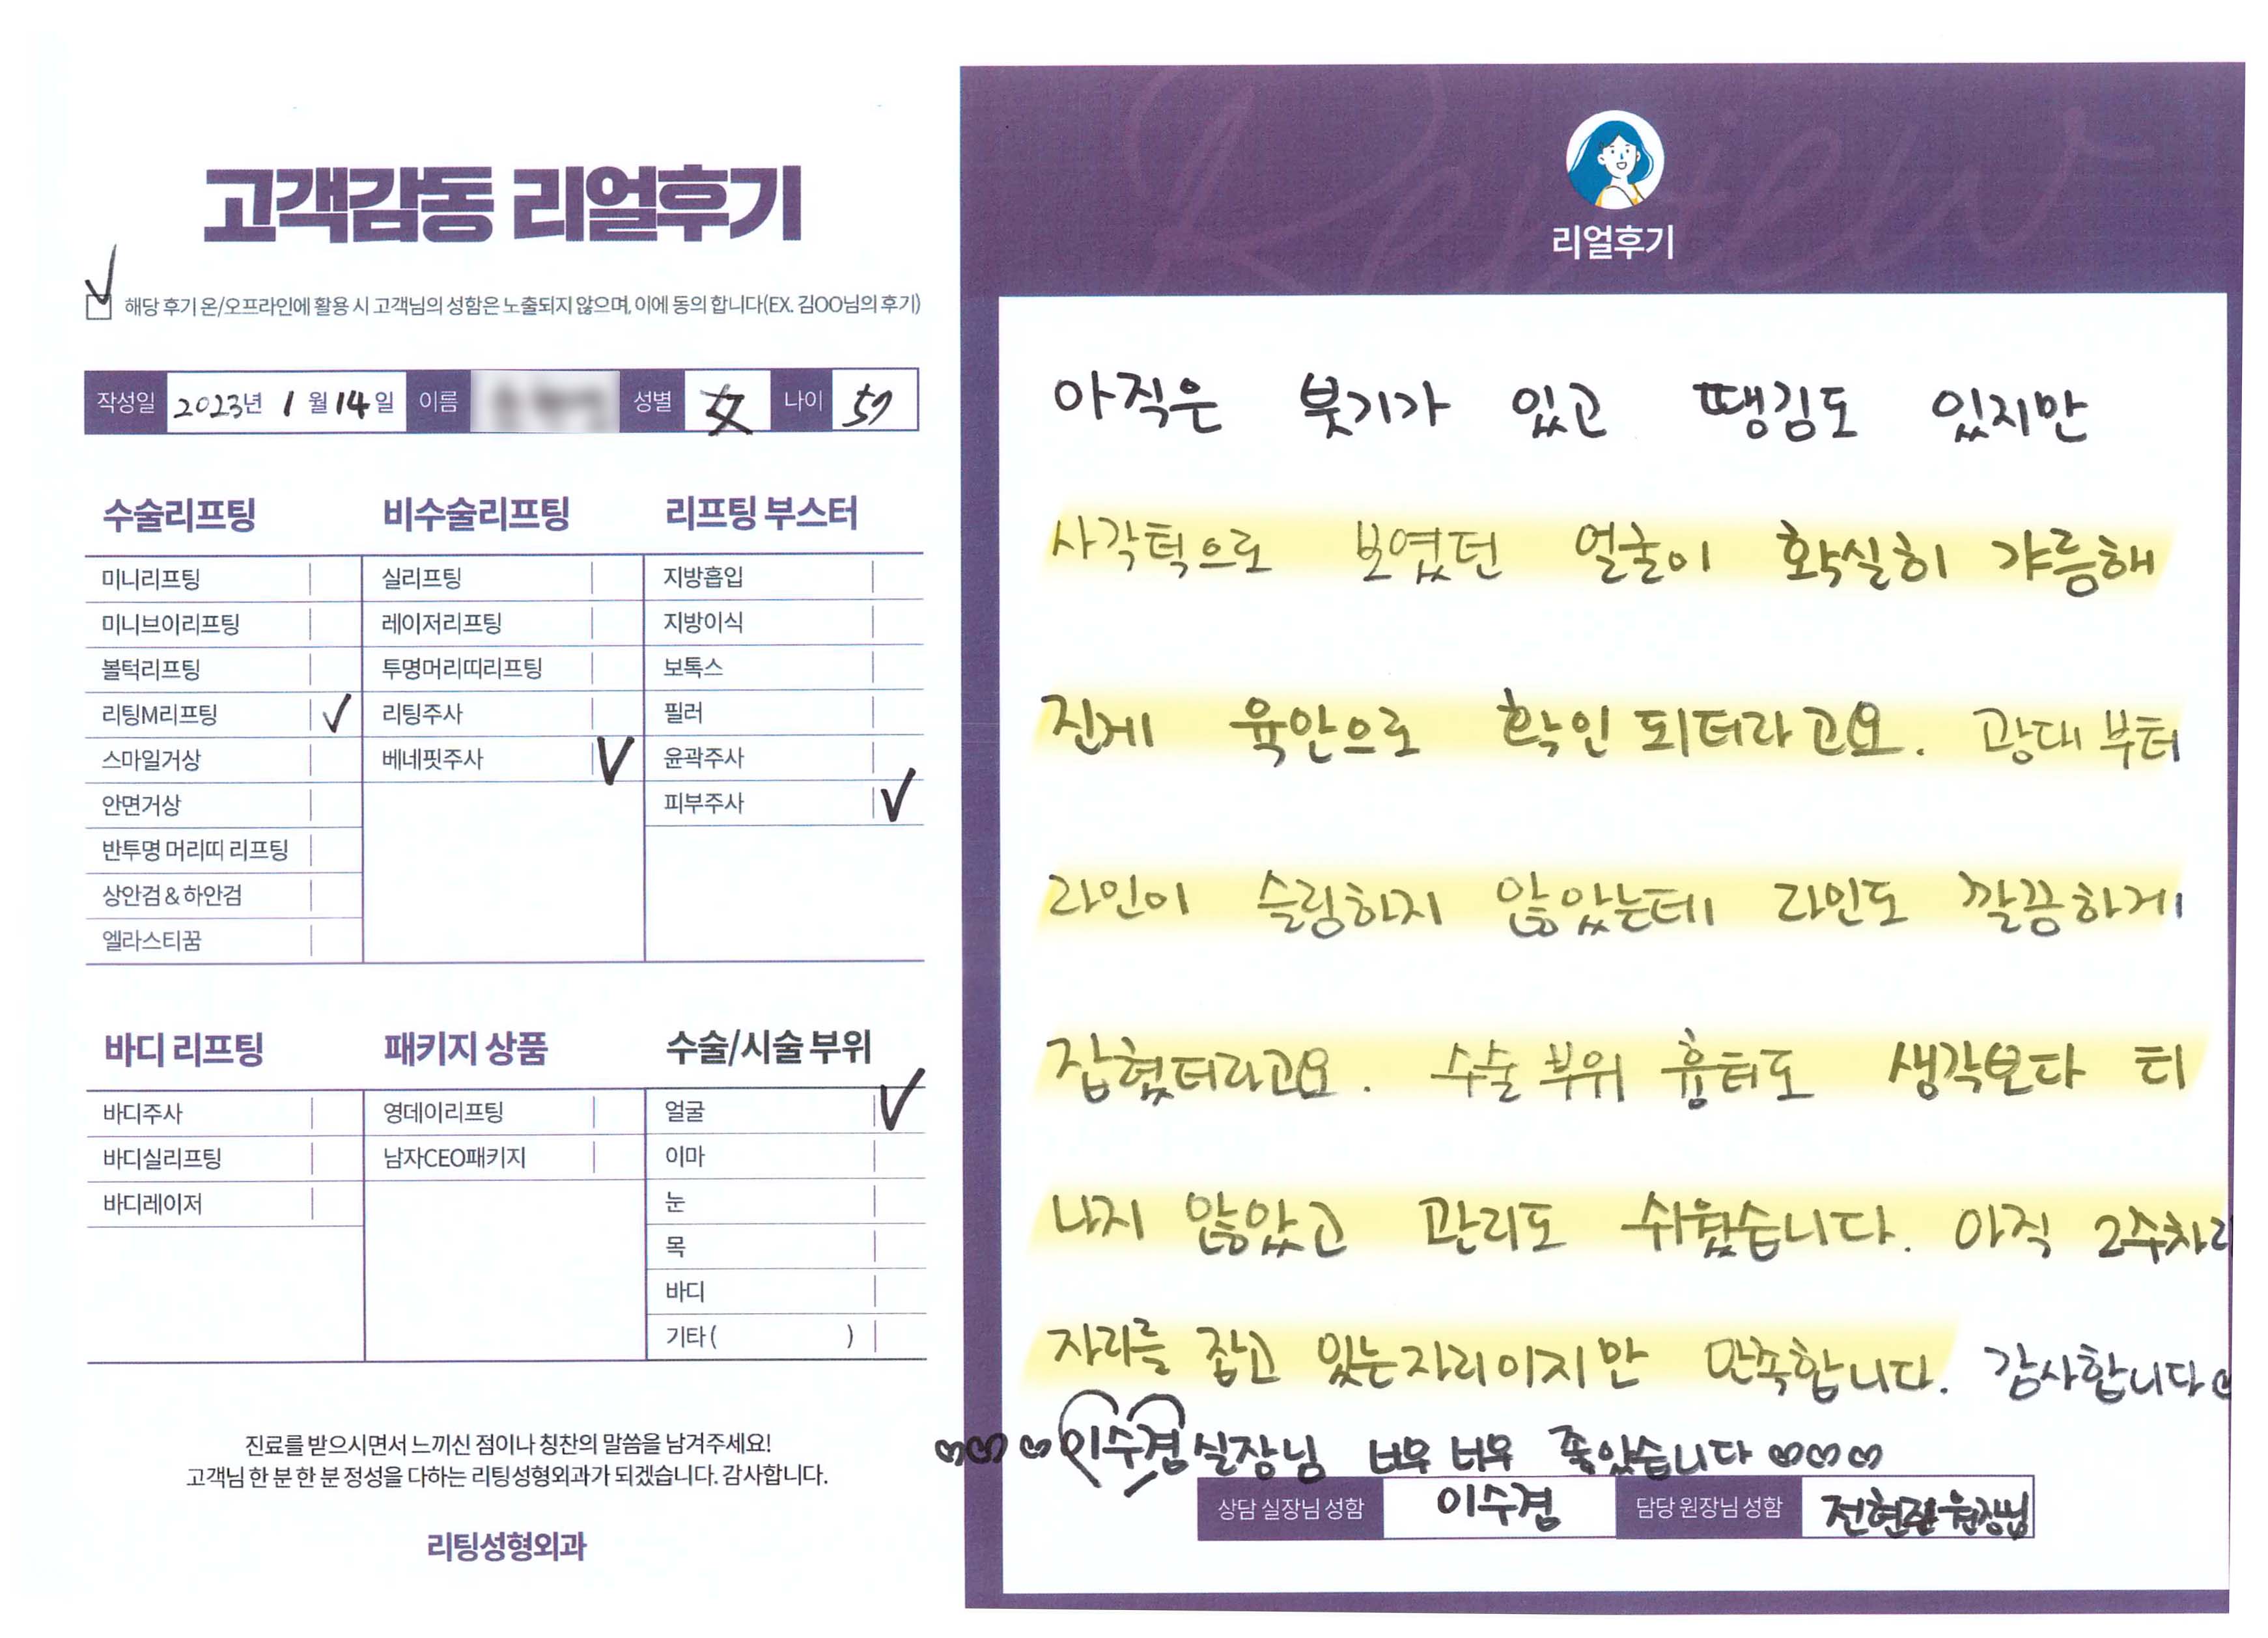 고객감동 리얼후기
해당 후기 온/오프라인에 활용 시 고객님의 성함은 노출되지 않으며, 이에 동의 합니다(EX. 김OO님의 후기)
작성일 2023년 1월 14일 이름 성별 女 나이 57
수술리프팅
미니리프팅
미니브이리프팅
볼턱리프팅
리팅M리프팅 ✓
스마일거상
안면거상
반투명 머리띠 리프팅
상안검 & 하안검
엘라스티꿈
비수술리프팅
실리프팅
레이저리프팅
투명머리띠리프팅
리팅주사
베네핏주사 ✓
리프팅 부스터
지방흡입
지방이식
보톡스
필러
윤곽주사
피부주사 ✓
바디 리프팅
바디주사
바디실리프팅
바디레이저
패키지 상품
영데이리프팅
남자CEO패키지
수술/시술 부위
얼굴 ✓
이마
눈
목
바디
기타 ( )
진료를 받으시면서 느끼신 점이나 칭찬의 말씀을 남겨주세요!
고객님 한 분 한 분 정성을 다하는 리팅성형외과가 되겠습니다. 감사합니다.
리팅성형외과
Review
리얼후기
아직은 붓기가 있고 땡김도 있지만
사각턱으로 보였던 얼굴이 확실히 갸름해
진게 육안으로 확인 되더라고요. 광대 부터
라인이 슬림하지 않았는데 라인도 깔끔하게
잡혔더라고요. 수술 부위 흉터도 생각보다 티
나지 않았고 관리도 쉬웠습니다. 아직 2주차라
자리를 잡고 있는자리이지만 만족합니다. 감사합니다
이수겸 실장님 너무 너무 좋았습니다
상담 실장님 성함 이수겸 담당 원장님 성함 원장님